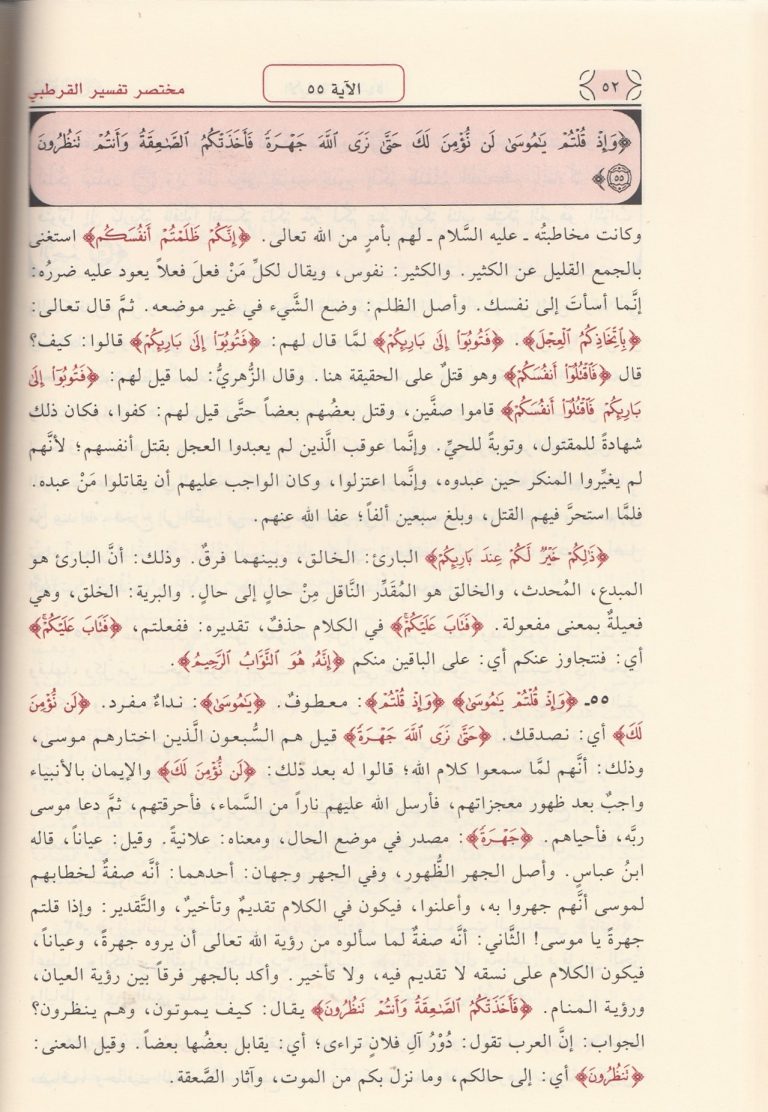 ٥٢
الآية ٥٥
مختصر تفسير القرطبي
﴿وَإِذْ قُلْتُمْ يَٰمُوسَىٰ لَن نُّؤْمِنَ لَكَ حَتَّىٰ نَرَى ٱللَّهَ جَهْرَةً فَأَخَذَتْكُمُ ٱلصَّٰعِقَةُ وَأَنتُمْ تَنظُرُونَ
٥٥﴾
وكانت مخاطبتُه ـ عليه السَّلام ـ لهم بأمرٍ من الله تعالى. ﴿إِنَّكُمْ ظَلَمْتُمْ أَنفُسَكُم﴾ استغنى
بالجمع القليل عن الكثير. والكثير: نفوس، ويقال لكلِّ مَنْ فعلَ فعلاً يعود عليه ضررُه:
إنَّما أسأتَ إلى نفسك. وأصل الظلم: وضع الشَّيء في غير موضعه. ثمَّ قال تعالى:
﴿بِٱتِّخَاذِكُمُ ٱلْعِجْلَ﴾. ﴿فَتُوبُوٓا۟ إِلَىٰ بَارِئِكُمْ﴾ لمَّا قال لهم: ﴿فَتُوبُوٓا۟ إِلَىٰ بَارِئِكُمْ﴾ قالوا: كيف؟
قال ﴿فَٱقْتُلُوٓا۟ أَنفُسَكُمْ﴾ وهو قتلٌ على الحقيقة هنا. وقال الزُّهريُّ: لما قيل لهم: ﴿فَتُوبُوٓا۟ إِلَىٰ
بَارِئِكُمْ فَٱقْتُلُوٓا۟ أَنفُسَكُمْ﴾ قاموا صفَّين، وقتل بعضُهم بعضاً حتَّى قيل لهم: كفوا، فكان ذلك
شهادةً للمقتول، وتوبةً للحيِّ. وإنَّما عوقب الَّذين لم يعبدوا العجل بقتل أنفسهم؛ لأنَّهم
لم يغيِّروا المنكر حين عبدوه، وإنَّما اعتزلوا، وكان الواجب عليهم أن يقاتلوا مَنْ عبده.
فلمَّا استحرَّ فيهم القتل، وبلغ سبعين ألفاً؛ عفا الله عنهم.
﴿ذَٰلِكُمْ خَيْرٌ لَّكُمْ عِندَ بَارِئِكُمْ﴾ البارئ: الخالق، وبينهما فرقٌ. وذلك: أنَّ البارئ هو
المبدع، المُحدث، والخالق هو المُقَدِّر النَّاقل مِنْ حالٍ إلى حالٍ. والبرية: الخلق، وهي
فعيلةٌ بمعنى مفعولة. ﴿فَتَابَ عَلَيْكُمْ﴾ في الكلام حذفٌ، تقديره: ففعلتم، ﴿فَتَابَ عَلَيْكُمْ﴾
أي: فتتجاوز عنكم أي: على الباقين منكم ﴿إِنَّهُۥ هُوَ ٱلتَّوَّابُ ٱلرَّحِيمُ﴾.
٥٥ـ ﴿وَإِذْ قُلْتُمْ يَٰمُوسَىٰ﴾ ﴿وَإِذْ قُلْتُمْ﴾: معطوفٌ. ﴿يَٰمُوسَىٰ﴾: نداءٌ مفرد. ﴿لَن نُّؤْمِنَ
لَكَ﴾ أي: نصدقك. ﴿حَتَّىٰ نَرَى ٱللَّهَ جَهْرَةً﴾ قيل هم السُّبعون الَّذين اختارهم موسى،
وذلك: أنَّهم لمَّا سمعوا كلام الله؛ قالوا له بعد ذلك: ﴿لَن نُّؤْمِنَ لَكَ﴾ والإيمان بالأنبياء
واجبٌ بعد ظهور معجزاتهم، فأرسل الله عليهم ناراً من السَّماء، فأحرقتهم، ثمَّ دعا موسى
ربَّه، فأحياهم. ﴿جَهْرَةً﴾: مصدر في موضع الحال، ومعناه: علانيةً. وقيل: عياناً، قاله
ابنُ عباسٍ. وأصل الجهر الظُّهور، وفي الجهر وجهان: أحدهما: أنَّه صفةٌ لخطابهم
لموسى أنَّهم جهروا به، وأعلنوا، فيكون في الكلام تقديمٌ وتأخيرٌ، والتَّقدير: وإذا قلتم
جهرةً يا موسى! الثَّاني: أنَّه صفةٌ لما سألوه من رؤية الله تعالى أن يروه جهرةً، وعياناً،
فيكون الكلام على نسقه لا تقديم فيه، ولا تأخير. وأكد بالجهر فرقاً بين رؤية العيان،
ورؤية المنام. ﴿فَأَخَذَتْكُمُ ٱلصَّٰعِقَةُ وَأَنتُمْ تَنظُرُونَ﴾ يقال: كيف يموتون، وهم ينظرون؟
الجواب: إنَّ العرب تقول: دُوْرُ آلِ فلانٍ تراءى؛ أي: يقابل بعضُها بعضاً. وقيل المعنى:
﴿تَنظُرُونَ﴾ أي: إلى حالكم، وما نزل بكم من الموت، وآثار الصَّعقة.